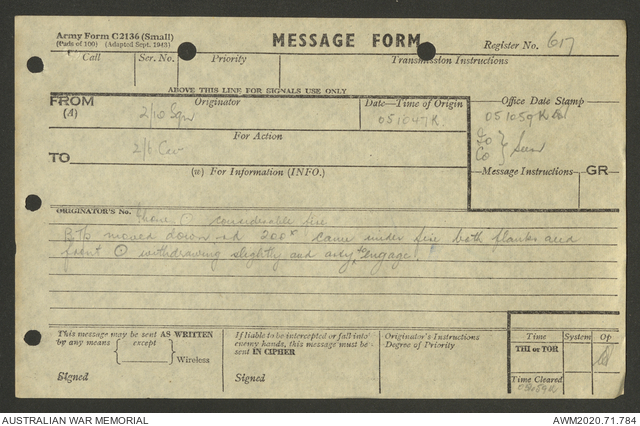 Army Form C2136 (Small)
(Pads of 100) (Adapted Sept. 1943)
MESSAGE FORM
Register No. 617
Call
Ser. No.
Priority
Transmission Instructions
ABOVE THIS LINE FOR SIGNALS USE ONLY
FROM
(A)
Originator
2/10 Sqn
Date—Time of Origin
051047K
Office Date Stamp
051059K
For Action
TO
2/6 Cav
CO
(w) For Information (INFO.)
Message Instructions
GR
ORIGINATOR'S No.
Phone considerable fire
Btp moved down rd 200x came under fire both flanks and
front withdrawing slightly and arty to engage.
This message may be sent AS WRITTEN
by any means except
Wireless
Signed
If liable to be intercepted or fall into
enemy hands, this message must be
sent IN CIPHER
Signed
Originator's Instructions
Degree of Priority
Time
System
Op
THI or TOR
Time Cleared
051059K
AUSTRALIAN WAR MEMORIAL
AWM2020.71.784